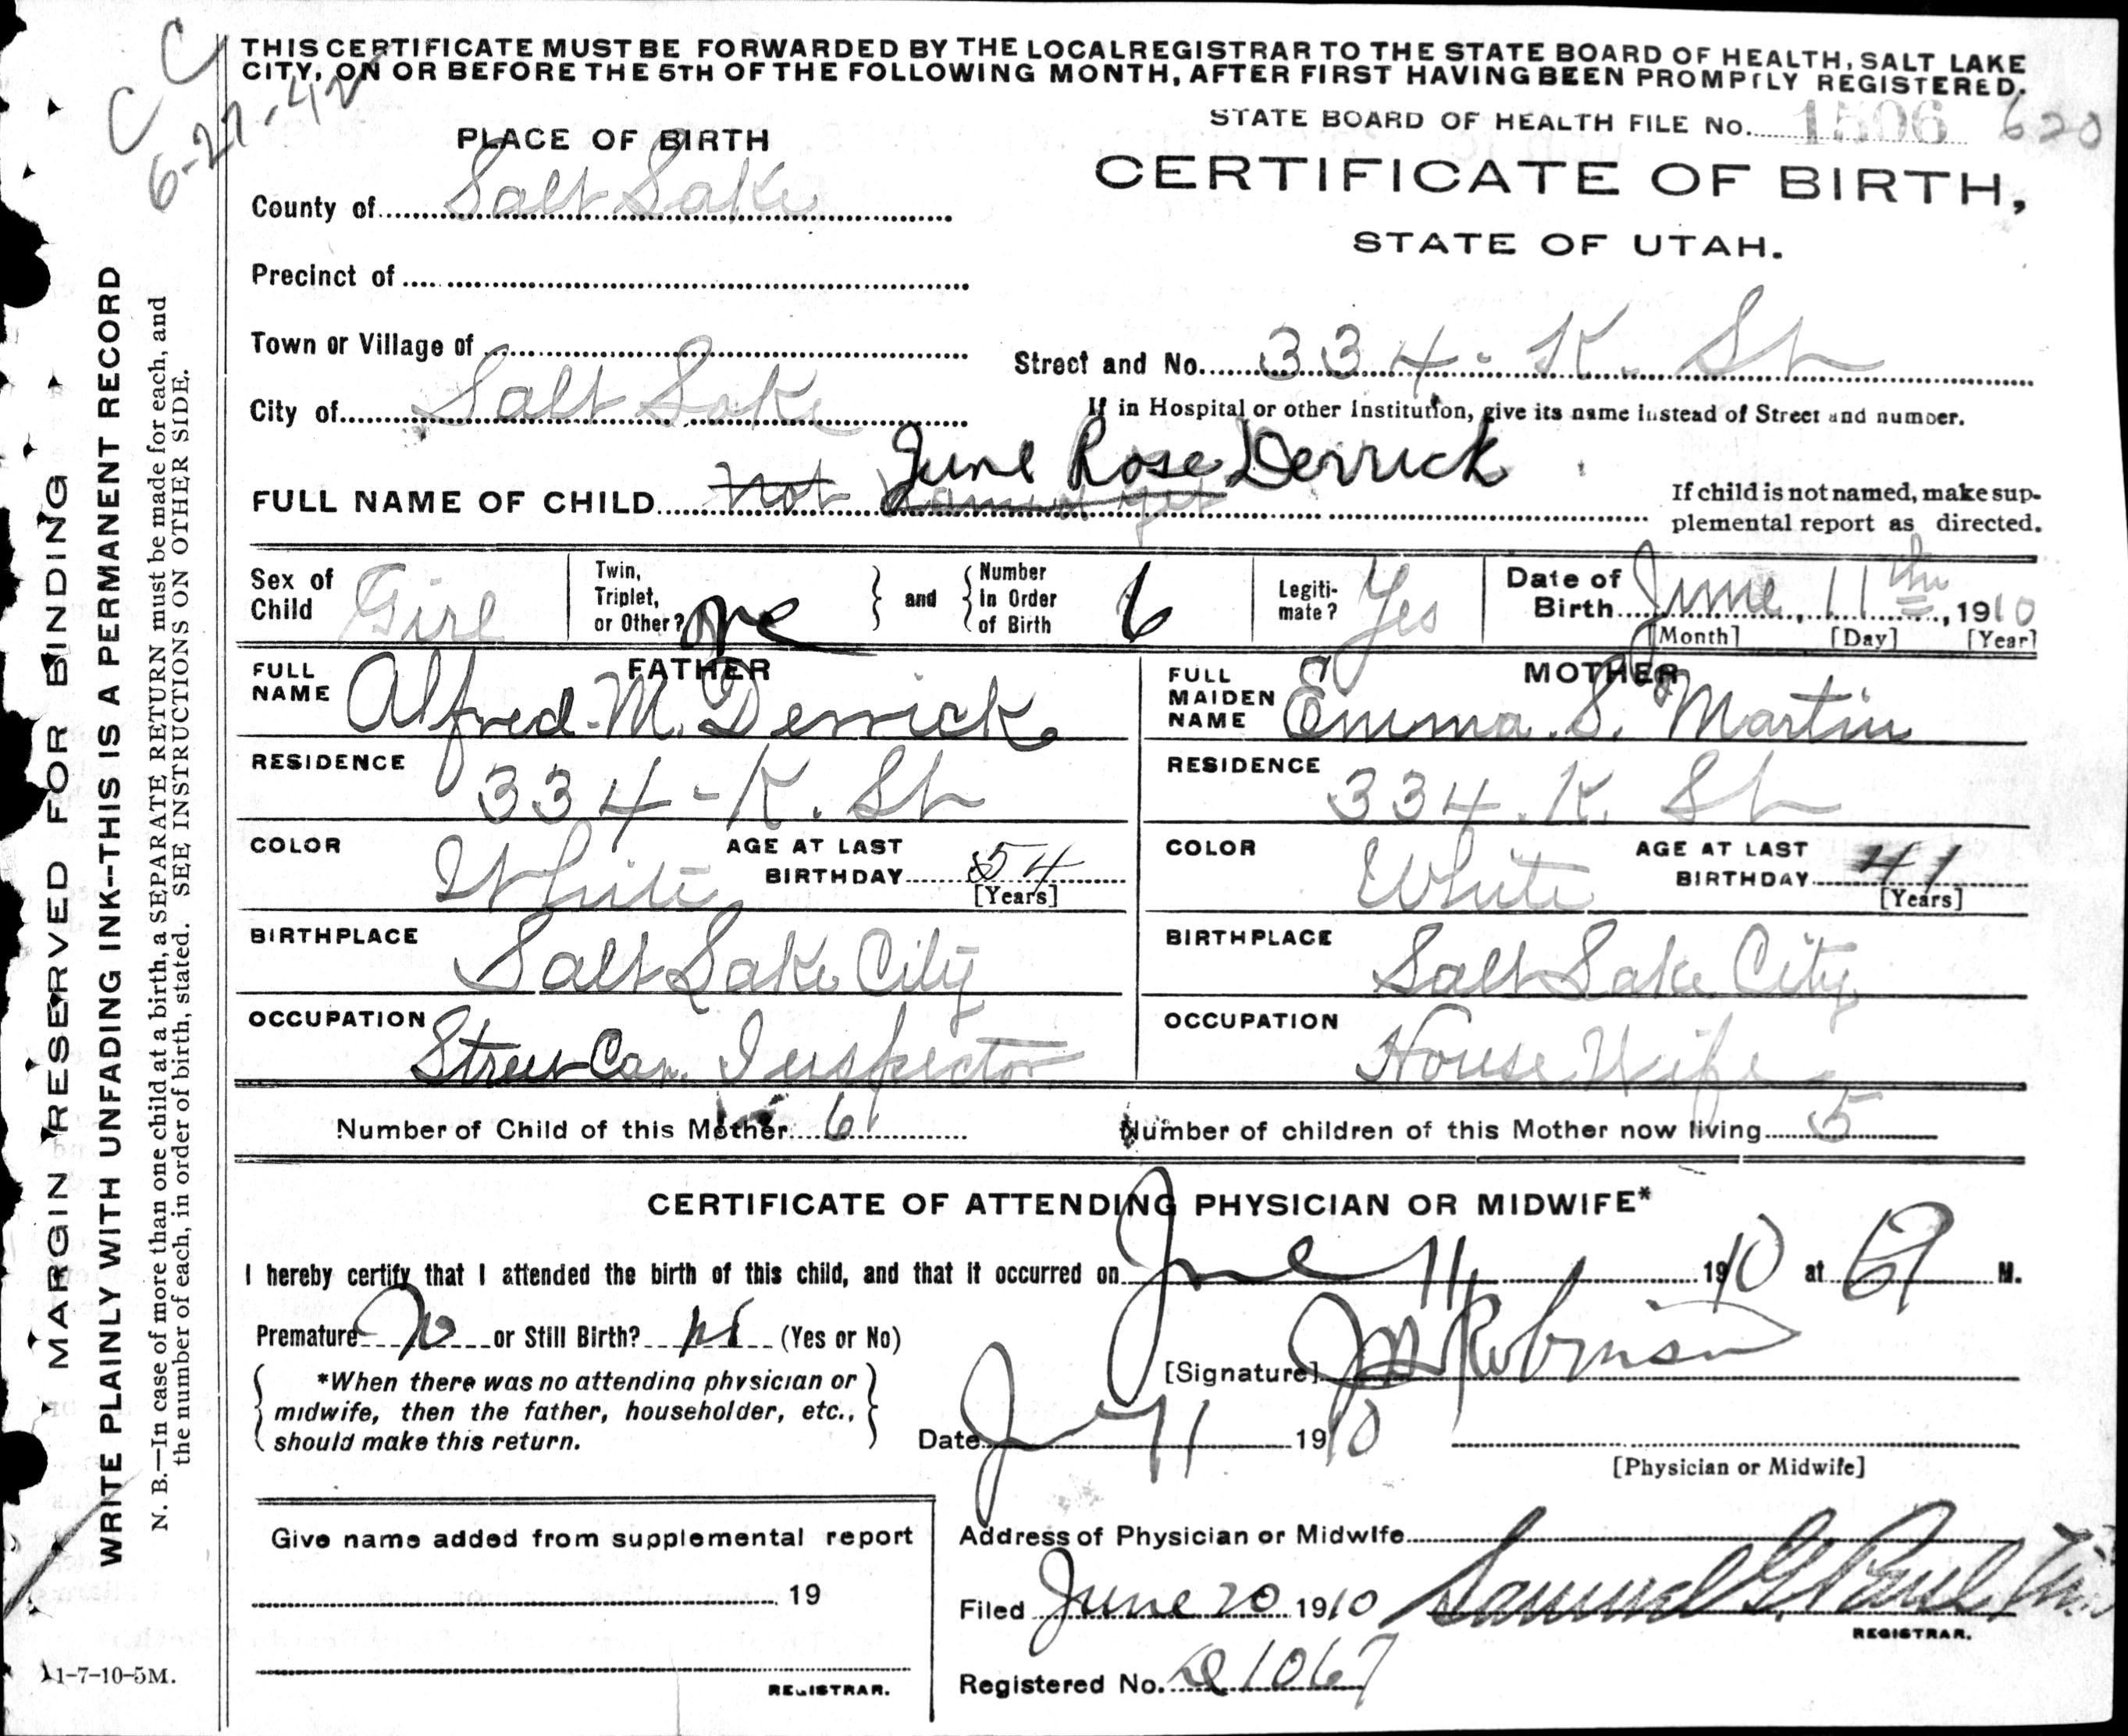 THIS CERTIFICATE MUST BE FORWARDED BY THE LOCAL REGISTRAR TO THE STATE BOARD OF HEALTH, SALT LAKE
CITY, ON OR BEFORE THE 5TH OF THE FOLLOWING MONTH, AFTER FIRST HAVING BEEN PROMPTLY REGISTERED.
CC
6-27-42
STATE BOARD OF HEALTH FILE No. 1506 620
CERTIFICATE OF BIRTH,
STATE OF UTAH.
PLACE OF BIRTH
County of Salt Lake
Precinct of
Town or Village of
City of Salt Lake
Street and No. 334 - K. St
If in Hospital or other Institution, give its name instead of Street and number.
June Rose Derrick
FULL NAME OF CHILD not named yet
If child is not named, make sup-
plemental report as directed.
Sex of Child Girl
Twin, Triplet, or Other? one and Number In Order of Birth 6
Legiti-mate? Yes
Date of Birth June, 11th, 1910
[Month] [Day] [Year]
FATHER
FULL NAME Alfred M. Derrick
RESIDENCE 334 - K. St
COLOR White AGE AT LAST BIRTHDAY 54 [Years]
BIRTHPLACE Salt Lake City
OCCUPATION Street Car Inspector
MOTHER
FULL MAIDEN NAME Emma. S. Martin
RESIDENCE 334. K. St
COLOR White AGE AT LAST BIRTHDAY 41 [Years]
BIRTHPLACE Salt Lake City
OCCUPATION House Wife
Number of Child of this Mother 6
Number of children of this Mother now living 5
CERTIFICATE OF ATTENDING PHYSICIAN OR MIDWIFE*
I hereby certify that I attended the birth of this child, and that it occurred on June 11 1910 at 6 M.
Premature No or Still Birth? No (Yes or No)
*When there was no attending physician or
midwife, then the father, householder, etc.,
should make this return.
[Signature] Robinson
Date 11 1910
[Physician or Midwife]
Give name added from supplemental report
19
REGISTRAR.
Address of Physician or Midwife
Filed June 20 1910 Samuel G. Paul
REGISTRAR.
Registered No. 1067
1-7-10-5M.
MARGIN RESERVED FOR BINDING
WRITE PLAINLY WITH UNFADING INK--THIS IS A PERMANENT RECORD
N. B.—In case of more than one child at a birth, a SEPARATE RETURN must be made for each, and
the number of each, in order of birth, stated. SEE INSTRUCTIONS ON OTHER SIDE.